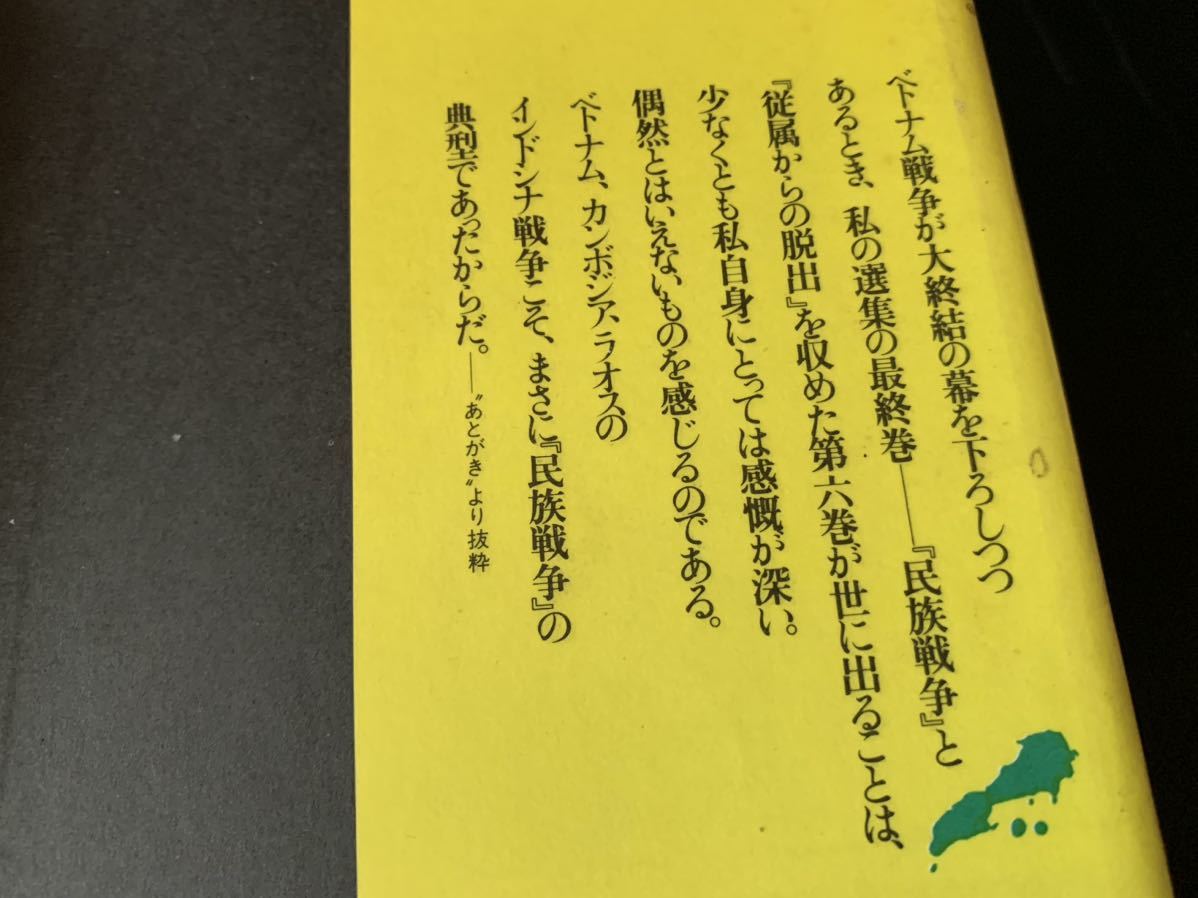 ベトナム戦争が大終結の幕を下ろしつつ
あるとき、私の選集の最終巻――『民族戦争』と
『従属からの脱出』を収めた第六巻が世に出ることは、
少なくとも私自身にとっては感慨が深い。
偶然とはいえないものを感じるのである。
ベトナム、カンボジア、ラオスの
インドシナ戦争こそ、まさに『民族戦争』の
典型であったからだ。――〝あとがき〟より抜粋